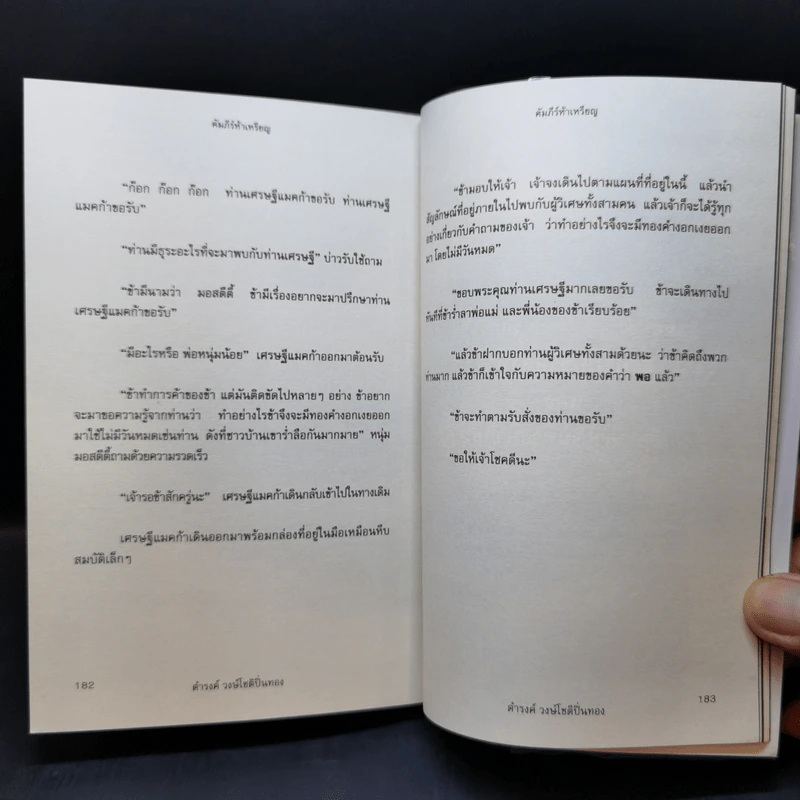 คัมภีร์ห้าเหรียญ
"ก๊อก ก๊อก ก๊อก ท่านเศรษฐีแมคก้าขอรับ ท่านเศรษฐี
แมคก้าขอรับ"
"ท่านมีธุระอะไรที่จะมาพบกับท่านเศรษฐี" บ่าวรับใช้ถาม
"ข้ามีนามว่า มอสดีดี้ ข้ามีเรื่องอยากจะมาปรึกษาท่าน
เศรษฐีแมคก้าขอรับ"
"มีอะไรหรือ พ่อหนุ่มน้อย" เศรษฐีแมคก้าออกมาต้อนรับ
"ข้าทำการค้าของข้า แต่มันติดขัดไปหลายๆ อย่าง ข้าอยาก
จะมาขอความรู้จากท่านว่า ทำอย่างไรข้าจึงจะมีทองคำงอกเงยออก
มาใช้ไม่มีวันหมดเช่นท่าน ดังที่ชาวบ้านเขาร่ำลือกันมากมาย" หนุ่ม
มอสดีดี้ถามด้วยความรวดเร็ว
"เจ้ารอข้าสักครู่นะ" เศรษฐีแมคก้าเดินกลับเข้าไปในทางเดิม
เศรษฐีแมคก้าเดินออกมาพร้อมกล่องที่อยู่ในมือเหมือนหีบ
สมบัติเล็กๆ
182
ดำรงค์ วงษ์โชติปิ่นทอง
คัมภีร์ห้าเหรียญ
"ข้ามอบให้เจ้า เจ้าจงเดินไปตามแผนที่ที่อยู่ในนี้ แล้วนำ
สัญลักษณ์ที่อยู่ภายในไปพบกับผู้วิเศษทั้งสามคน แล้วเจ้าก็จะได้รู้ทุก
อย่างเกี่ยวกับคำถามของเจ้า ว่าทำอย่างไรจึงจะมีทองคำงอกเงยออก
มา โดยไม่มีวันหมด"
"ขอบพระคุณท่านเศรษฐีมากเลยขอรับ ข้าจะเดินทางไป
ทันทีที่ข้าร่ำลาพ่อแม่ และพี่น้องของข้าเรียบร้อย"
"แล้วข้าฝากบอกท่านผู้วิเศษทั้งสามด้วยนะ ว่าข้าคิดถึงพวก
ท่านมาก แล้วข้าก็เข้าใจกับความหมายของคำว่า พอ แล้ว"
"ข้าจะทำตามรับสั่งของท่านขอรับ"
"ขอให้เจ้าโชคดีนะ"
183
ดำรงค์ วงษ์โชติปิ่นทอง